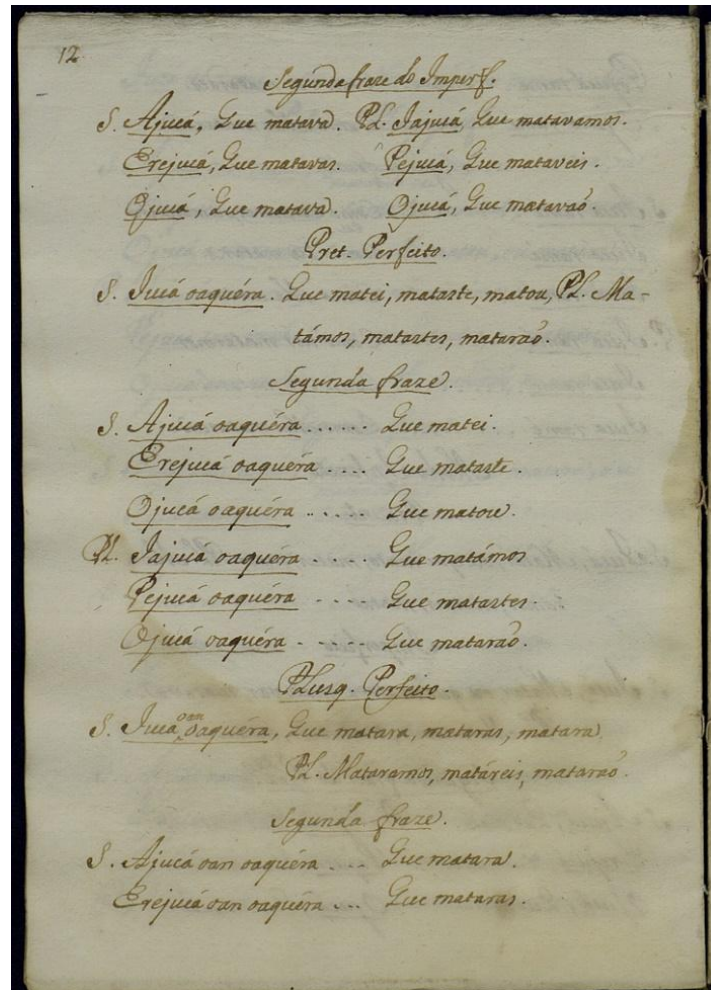 12.
Segunda fraze do Imperf.
S. Ajucá, Que matava. PL. Jajucá, Que matavamos.
Erejucá, Que matavas. Pejucá, Que mataveis.
Ojucá, Que matava. Ojucá, Que matavaõ.
Pret. Perfeito.
S. Jucá oaquéra. Que matei, mataste, matou, PL. Ma-
támos, matastes, mataraõ.
Segunda fraze.
S. Ajucá oaquéra ...... Que matei.
Erejucá oaquéra .... Que mataste.
Ojucá oaquéra ..... Que matou.
PL. Jajucá oaquéra ..... Que matámos
Pejucá oaquéra - - - - Que matastes.
Ojucá oaquéra - - - - - Que mataraõ.
PLusq. Perfeito.
S. Jucá oan oaquéra, Que matara, mataras, matara,
PL. Mataramos, matáreis, mataraõ.
Segunda fraze.
S. Ajucá oan oaquéra .... Que matara.
Erejucá oan oaquéra ... Que mataras.